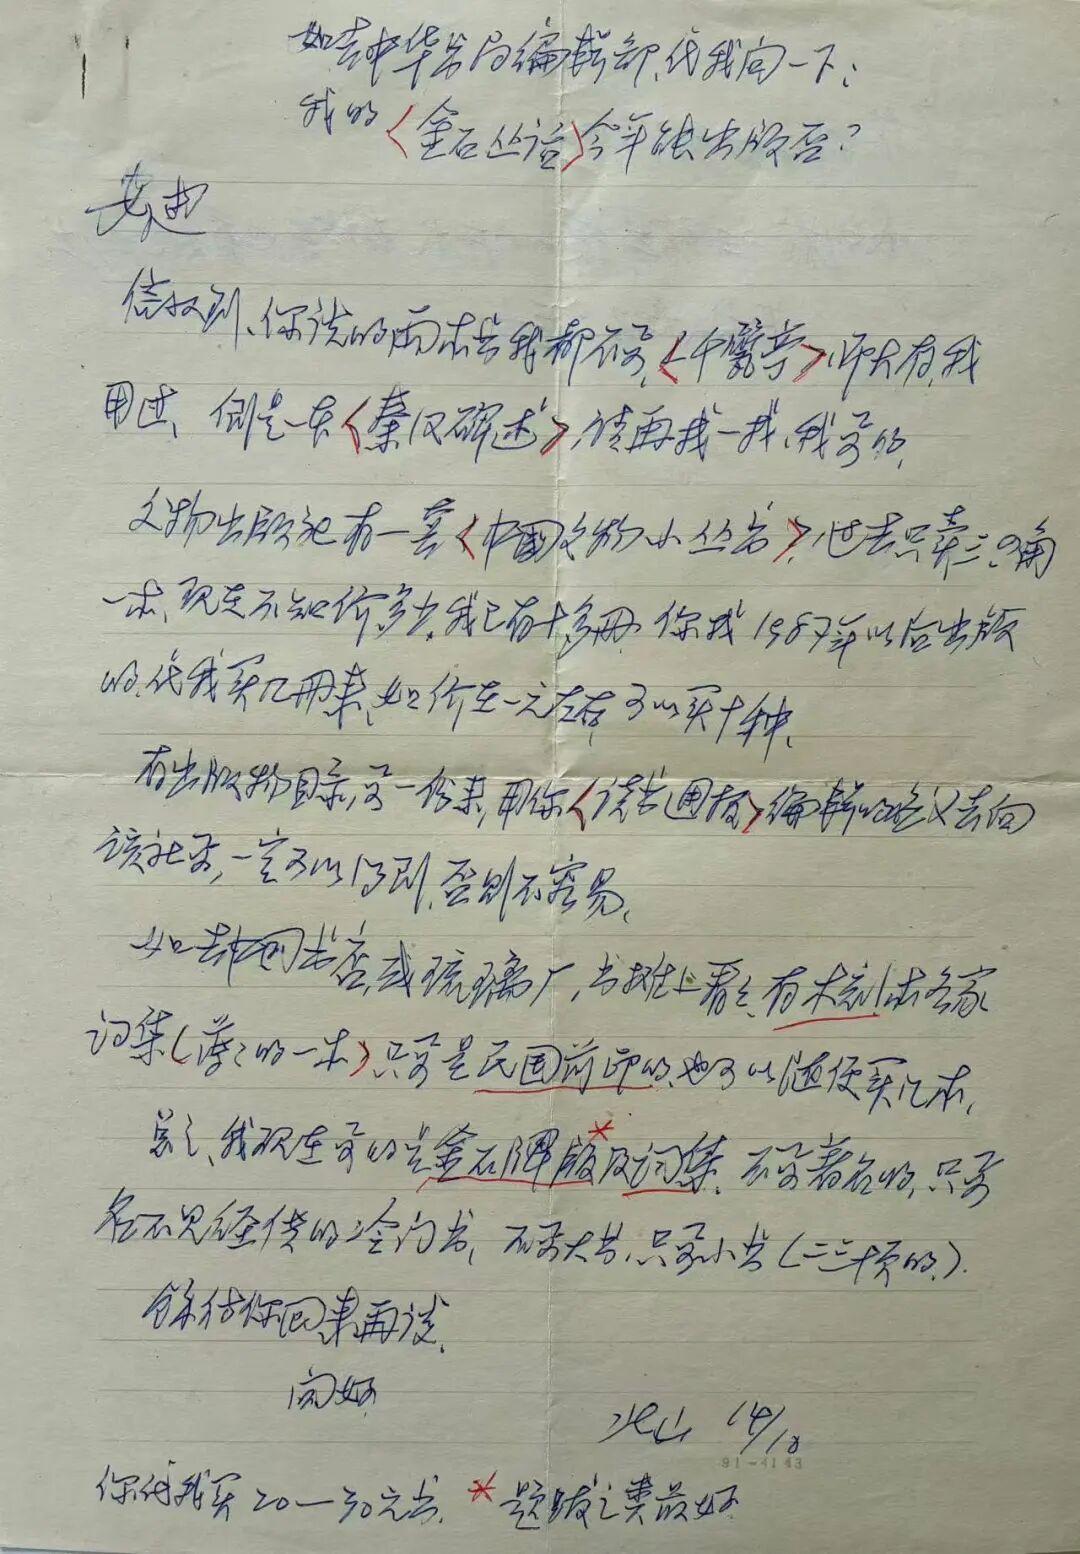 如去中华书局编辑部,代我问一下:
我的〈金石丛话〉今年能出版否?
安迪
信收到、你说的两本书我都不要,〈千甓亭〉,师大有,我
用过、倒是一本〈秦汉碑述〉,请再找一找、我要的,
文物出版社有一套〈中國文物小丛书〉,过去只卖三、四角
一本,现在不知价多少,我已有十多册,你找1987年以后出版
的,代我买几册来,如价在一元左右,可以买十种、
有出版物目录,要一份来,用你〈读书周报〉编辑的名义去向
该社要,一定可以得到,否则不容易、
如去中国书店,或琉璃厂,书摊上看看,有木刻本各家
词集(薄薄的一本)只要是民国前印的,也可以随便买几本,
总之,我现在要的是金石碑版*及词集,不要著名的,只要
名不见经传的冷门书,不要大书,只要小书(二三十页的,).
馀待你回来再谈,
问好
北山 14/10
91-4143
你代我买20—30元书, *题跋之类最好